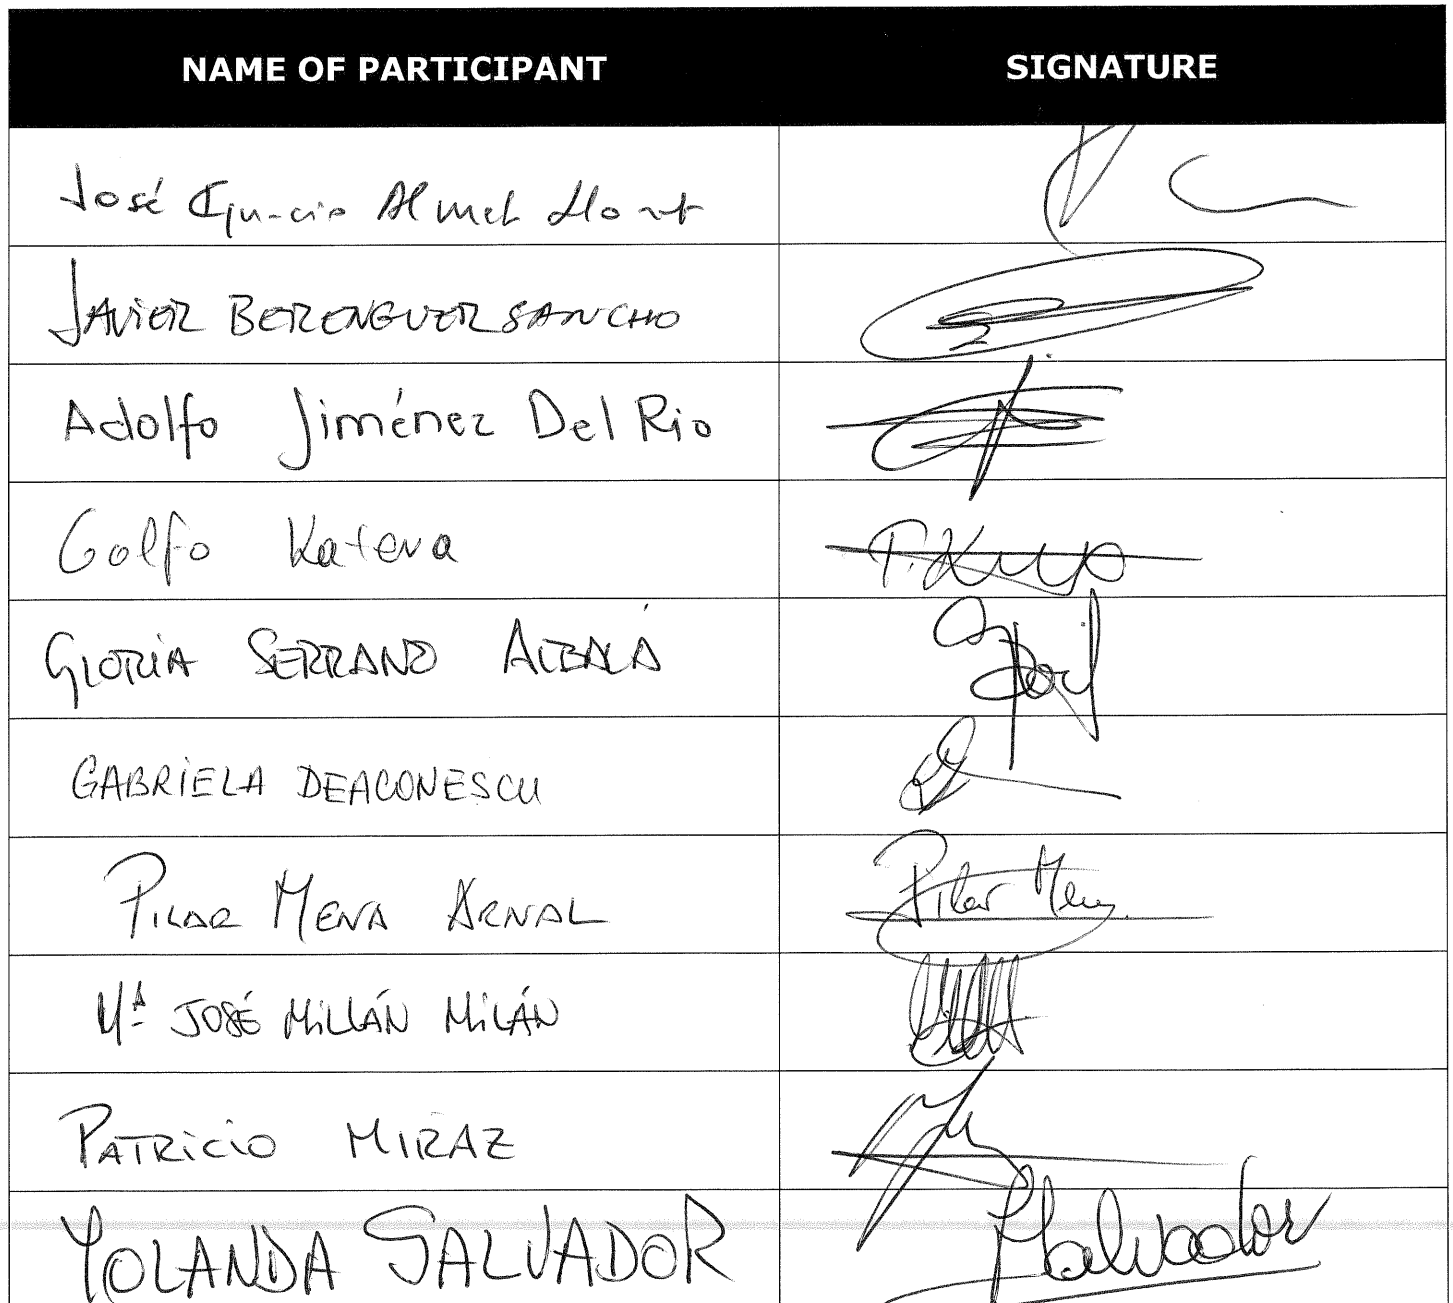 NAME OF PARTICIPANT SIGNATURE
José Ignacio
JAVIER BERENGUER SANCHO
Adolfo Jiménez Del Rio
Golfo Kateva
GLORIA SERRANO ALBALÁ
GABRIELA DEACONESCU
PILAR MENA ARNAL Pilar Mena
Mª JOSÉ MILLÁN MILÁN
PATRICIO MIRAZ
YOLANDA SALVADOR YSalvador